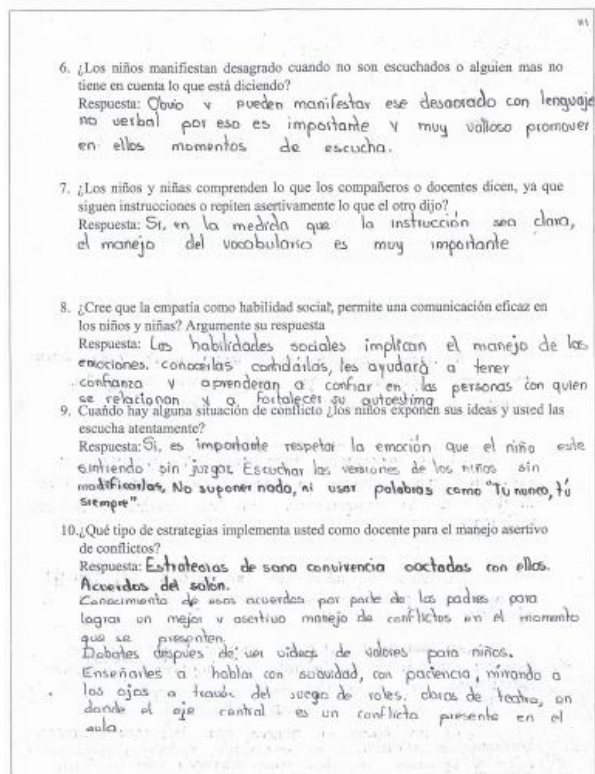 6. ¿Los niños manifiestan desagrado cuando no son escuchados o alguien mas no
tiene en cuenta lo que está diciendo?
Respuesta: Obvio y pueden manifestar ese desagrado con lenguaje
no verbal por eso es importante y muy valioso promover
en ellos momentos de escucha.
7. ¿Los niños y niñas comprenden lo que los compañeros o docentes dicen, ya que
siguen instrucciones o repiten asertivamente lo que el otro dijo?
Respuesta: Si, en la medida que la instrucción sea clara,
el manejo del vocabulario es muy importante
8. ¿Cree que la empatía como habilidad social, permite una comunicación eficaz en
los niños y niñas? Argumente su respuesta
Respuesta: Las habilidades sociales implican el manejo de las
emociones. conocerlas les ayudará a tener
confianza y aprenderan a confiar en las personas con quien
se relacionan y a fortalecer su autoestima
9. Cuándo hay alguna situación de conflicto ¿los niños exponen sus ideas y usted las
escucha atentamente?
Respuesta: Si, es importante respetar la emoción que el niño este
sintiendo sin juzgar. Escuchar las versiones de los niños sin
modificarlas, No suponer nada, ni usar palabras como "Tú nunca, tú
siempre".
10.¿Qué tipo de estrategias implementa usted como docente para el manejo asertivo
de conflictos?
Respuesta: Estrategias de sana convivencia pactadas con ellos.
Acuerdos del salón.
Conocimiento de esos acuerdos por parte de los padres para
lograr un mejor y asertivo manejo de conflictos en el momento
que se presenten.
Debates después de ver videos de valores para niños.
Enseñarles a hablar con suavidad, con paciencia, mirando a
los ojos a través del juego de roles, obras de teatro, en
donde el eje central es un conflicto presente en el
aula.